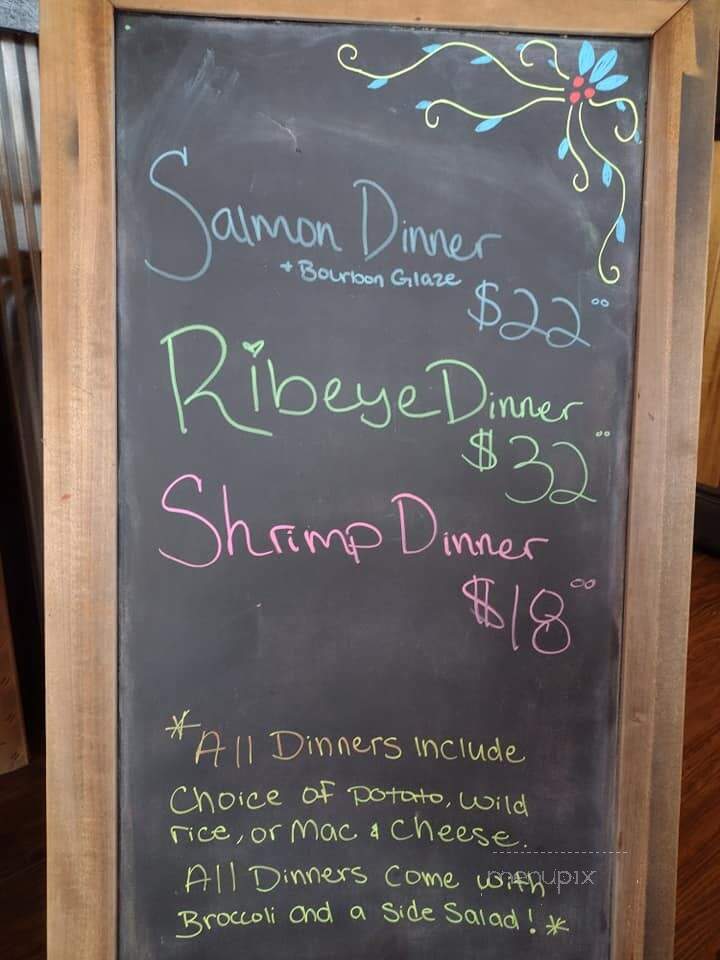 Salmon Dinner
+ Bourbon Glaze
$22.00
Ribeye Dinner
$32.00
Shrimp Dinner
$18.00
*All Dinners Include
Choice of potato, wild
rice, or Mac & Cheese.
All Dinners Come with
Broccoli and a Side Salad! *
menupix